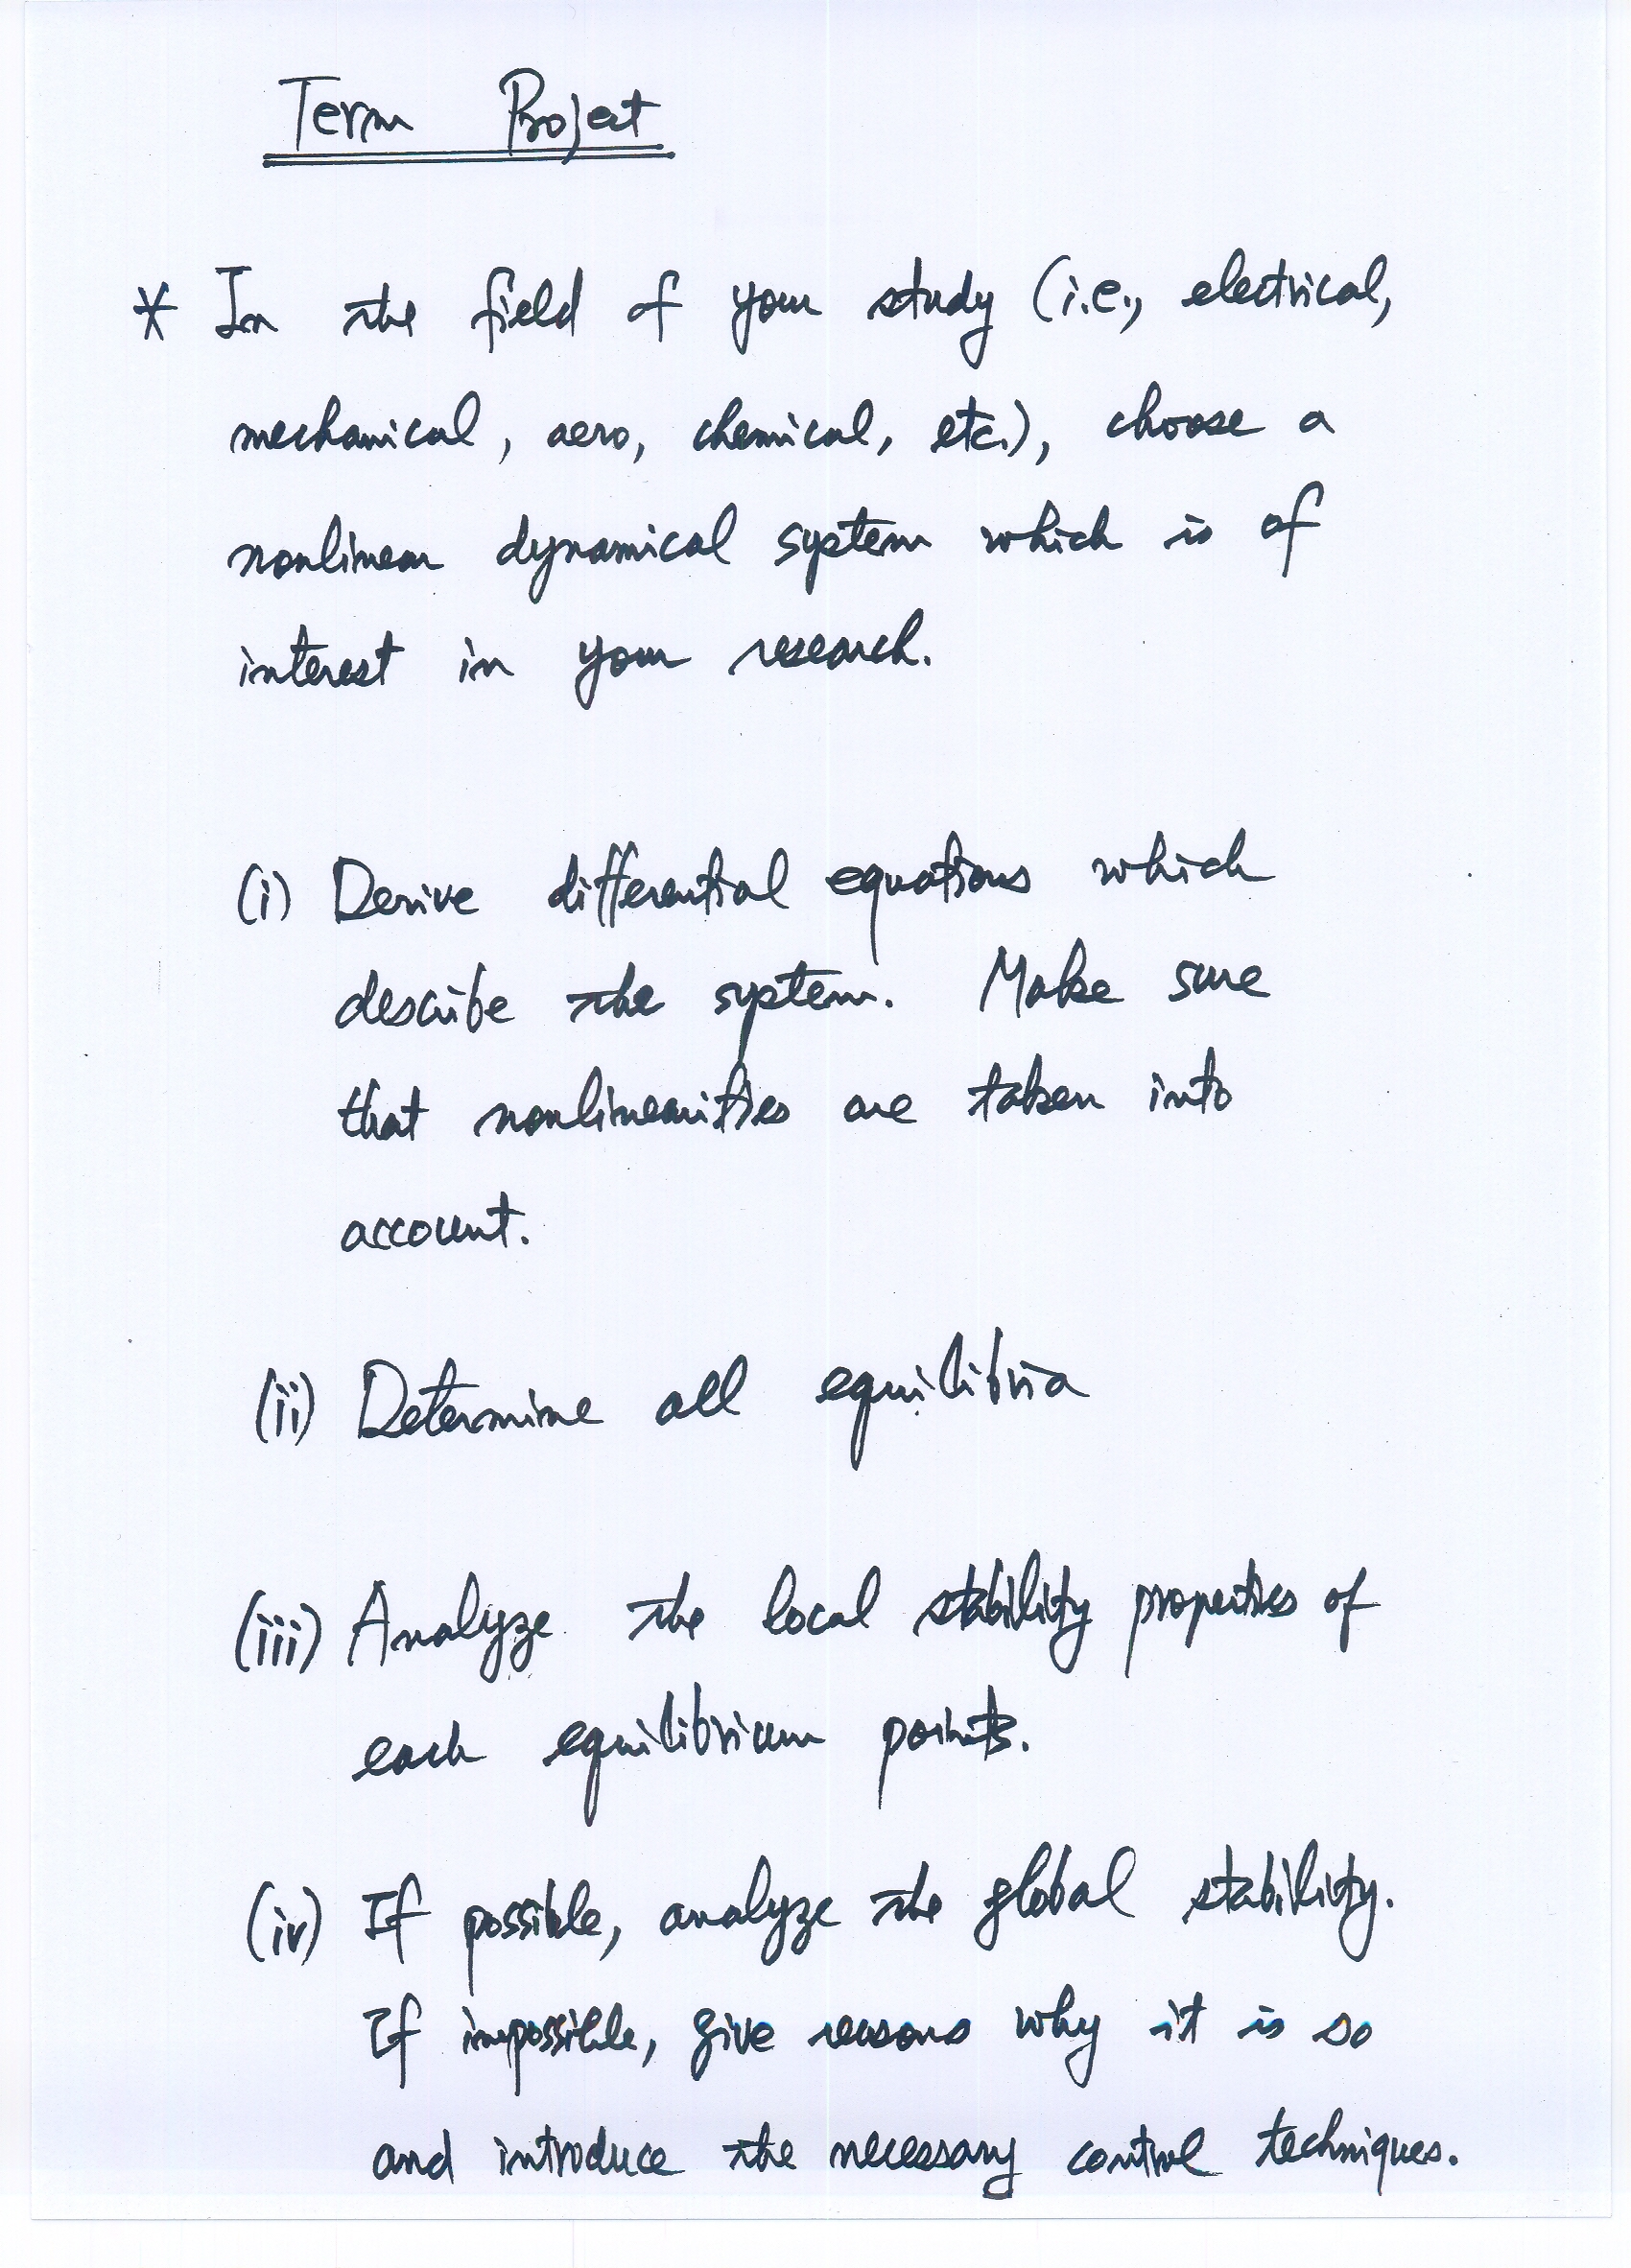 Term Project
* In the field of your study (i.e., electrical,
mechanical, aero, chemical, etc.), choose a
nonlinear dynamical system which is of
interest in your research.
(i) Derive differential equations which
describe the system. Make sure
that nonlinearities are taken into
account.
(ii) Determine all equilibria
(iii) Analyze the local stability properties of
each equilibrium points.
(iv) If possible, analyze the global stability.
If impossible, give reasons why it is so
and introduce the necessary control techniques.